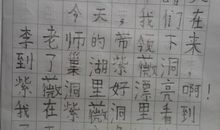 今天，我们在
李老师的带领下来
到了巢湖紫薇洞
紫薇洞好漂亮啊！
我在紫薇洞里看到